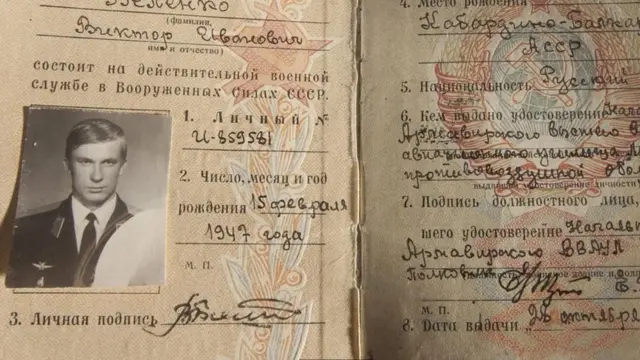 Беленко
(фамилия,
Виктор Иванович
имя и отчество)
состоит на действительной военной
службе в Вооруженных Силах СССР.
1. Личный №
И-859581
2. Число, месяц и год
рождения 15 февраля
1947 года
М. П.
3. Личная подпись
4. Место рождения
Кабардино-Балка
АССР
5. Национальность Русский
6. Кем выдано удостоверение
Армавирского высшего в
авиационного училища
противовоздушной обо
выдавшей удостоверение личности
7. Подпись должностного лица,
шего удостоверение Началь
Армавирского ВВАУЛ
полковник
М. П.
8. Дата выдачи 28 октябр